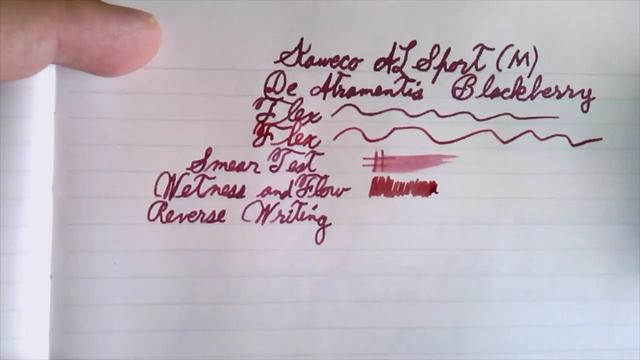 Kaweco AL Sport (M)
De Atramentis Blackberry
Flex
Flex
Smear Test
Wetness and Flow
Reverse Writing